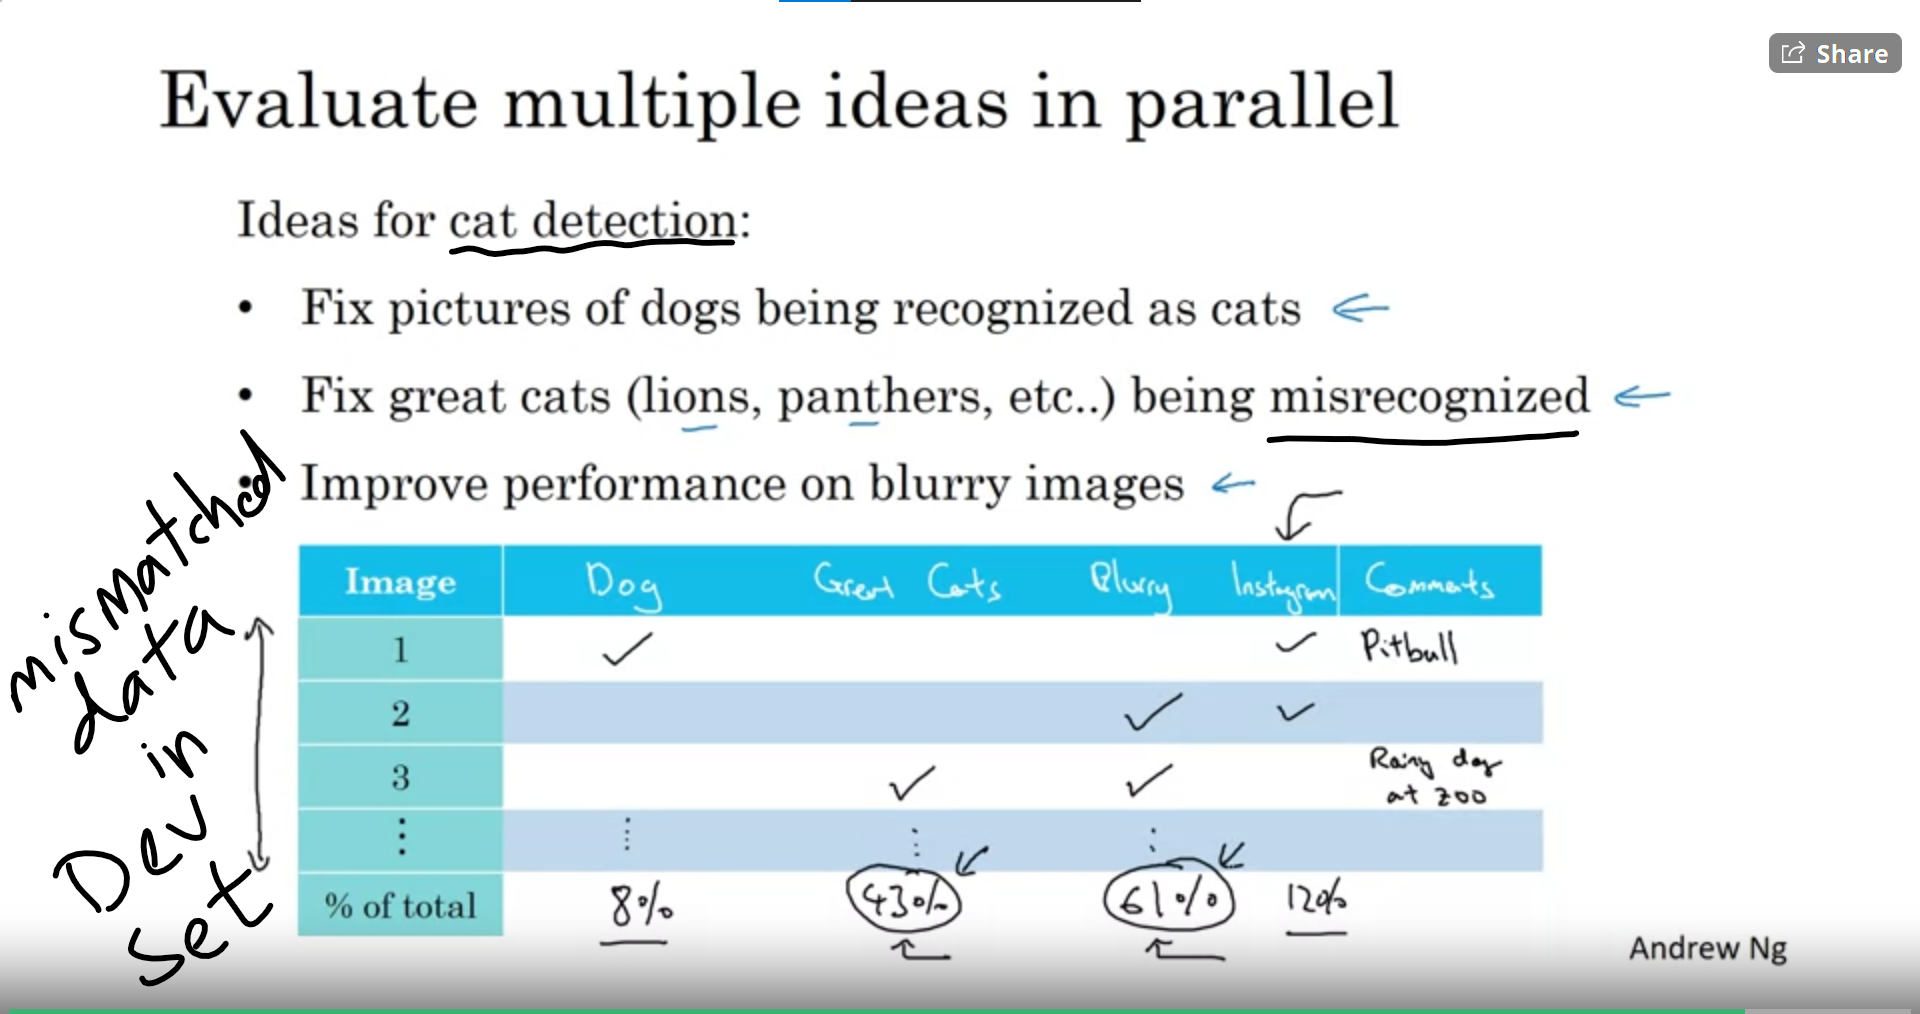 Share
Evaluate multiple ideas in parallel
Ideas for cat detection:
• Fix pictures of dogs being recognized as cats
• Fix great cats (lions, panthers, etc..) being misrecognized
• Improve performance on blurry images
mismatched
data
in
Dev
set
Image Dog Great Cats Blurry Instagram Comments
1 ✓ ✓ Pitbull
2 ✓ ✓
3 ✓ ✓ Rainy day
at zoo
⋮ ⋮ ⋮ ⋮
% of total 8% 43% 61% 12%
Andrew Ng